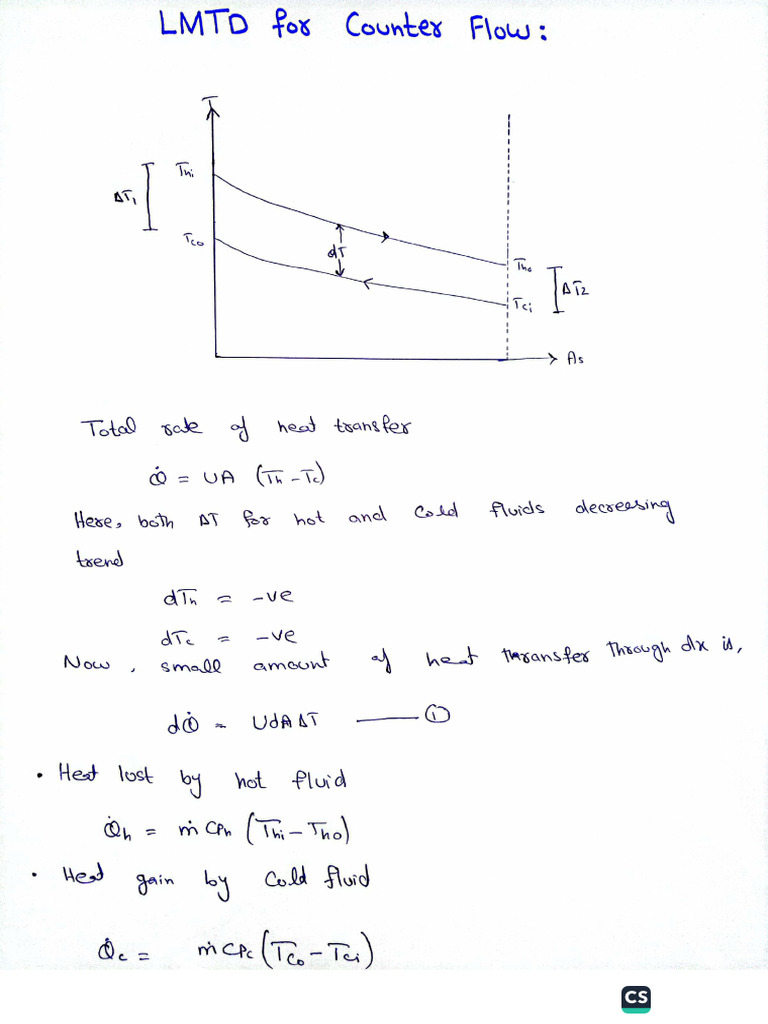 LMTD for Counter Flow:
T
Thi
ΔT₁
Tco
dT
Tho
ΔT2
Tci
As
Total rate of heat transfer
Q̇ = UA (Th - Tc)
Here, both ΔT for hot and cold fluids decreesing
trend
dTh = -ve
dTc = -ve
Now, small amount of heat transfer through dx is,
dQ̇ = UdAΔT —— ①
• Heat lost by hot fluid
Q̇h = ṁ CPh (Thi - Tho)
• Heat gain by cold fluid
Q̇c = ṁ CPc (Tco - Tci)
CS